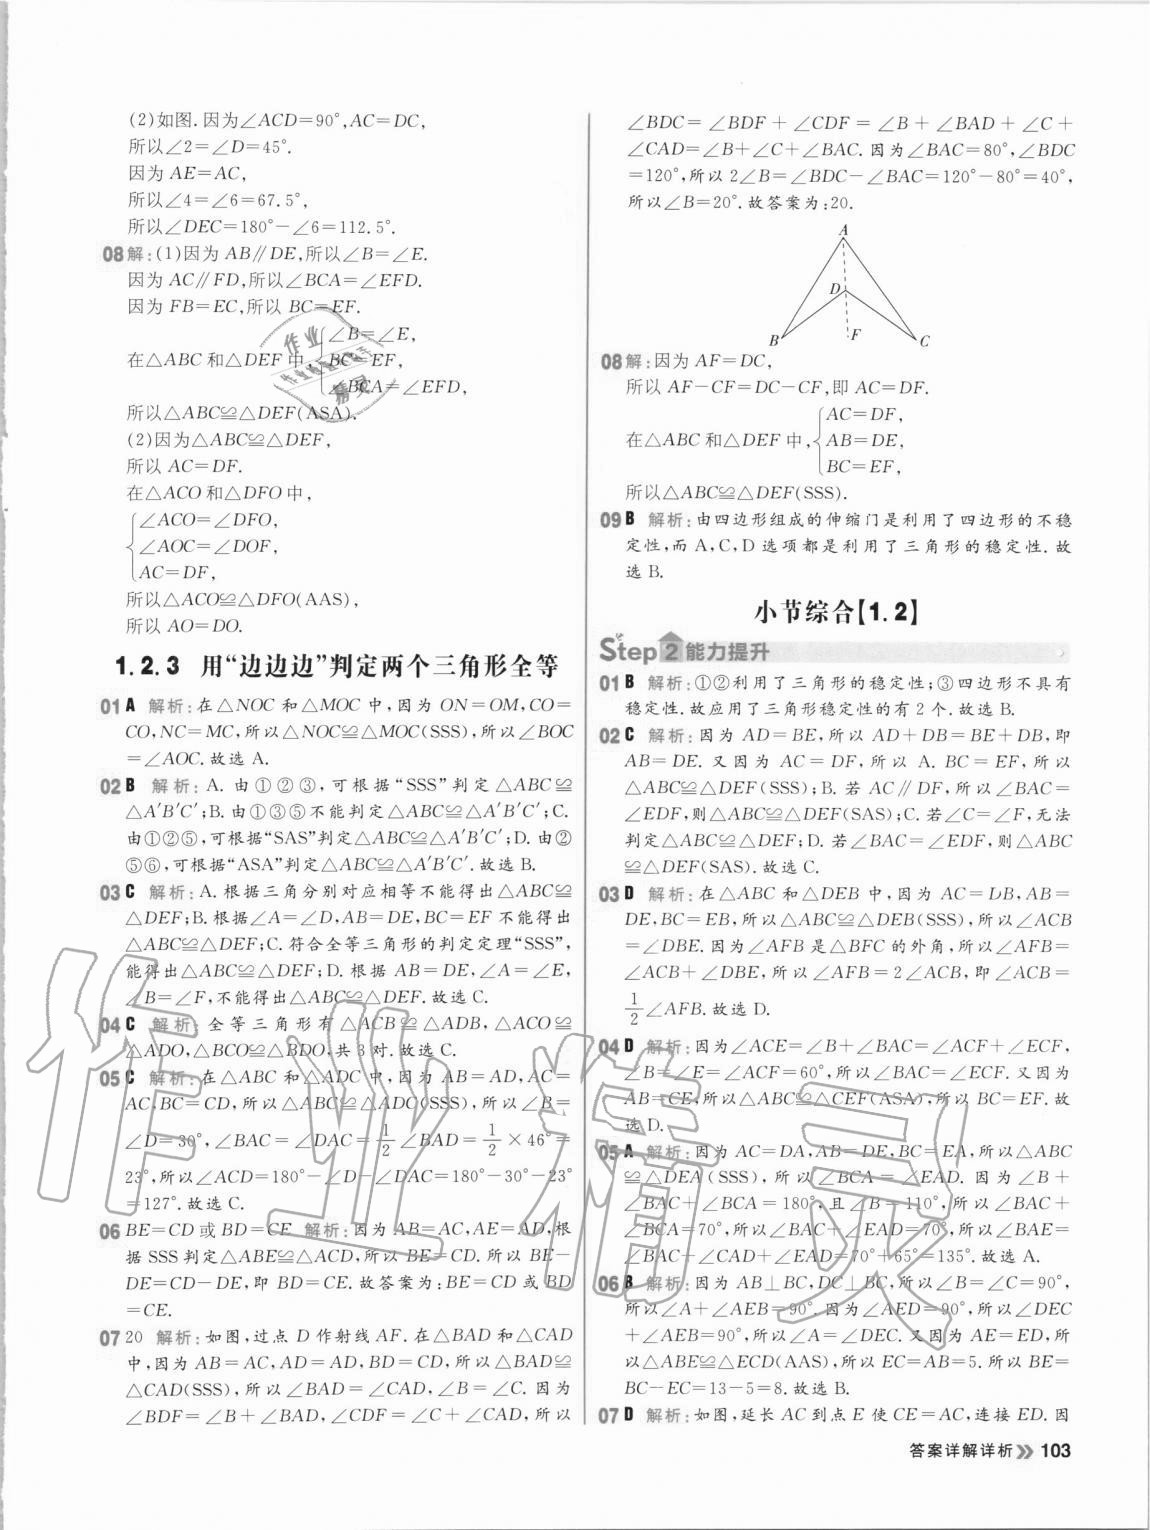 (2)如图.因为∠ACD=90°,AC=DC,
所以∠2=∠D=45°.
因为 AE=AC,
所以∠4=∠6=67.5°,
所以∠DEC=180°-∠6=112.5°.
08 解:(1)因为 AB∥DE,所以∠B=∠E.
因为 AC∥FD,所以∠BCA=∠EFD.
因为 FB=EC,所以 BC=EF.
∠B=∠E,
在△ABC 和△DEF 中, BC=EF,
∠BCA=∠EFD,
所以△ABC≌△DEF(ASA).
(2)因为△ABC≌△DEF,
所以 AC=DF.
在△ACO 和△DFO 中,
∠ACO=∠DFO,
∠AOC=∠DOF,
AC=DF,
所以△ACO≌△DFO(AAS),
所以 AO=DO.
1.2.3 用“边边边”判定两个三角形全等
01 A 解析:在△NOC 和△MOC 中,因为 ON=OM,CO=
CO,NC=MC,所以△NOC≌△MOC(SSS),所以∠BOC
=∠AOC.故选 A.
02 B 解析:A.由①②③,可根据“SSS”判定△ABC≌
△A′B′C′;B.由①③⑤不能判定△ABC≌△A′B′C′;C.
由①②⑤,可根据“SAS”判定△ABC≌△A′B′C′;D.由②
⑤⑥,可根据“ASA”判定△ABC≌△A′B′C′.故选 B.
03 C 解析:A.根据三角分别对应相等不能得出△ABC≌
△DEF;B.根据∠A=∠D,AB=DE,BC=EF 不能得出
△ABC≌△DEF;C.符合全等三角形的判定定理“SSS”,
能得出△ABC≌△DEF;D.根据 AB=DE,∠A=∠E,
∠B=∠F,不能得出△ABC≌△DEF.故选 C.
04 C 解析:全等三角形有△ACB≌△ADB,△ACO≌
△ADO,△BCO≌△BDO,共 3 对.故选 C.
05 C 解析:在△ABC 和△ADC 中,因为 AB=AD,AC=
AC,BC=CD,所以△ABC≌△ADC(SSS),所以∠B=
∠D=30°,∠BAC=∠DAC=1/2∠BAD=1/2×46°=
23°,所以∠ACD=180°-∠D-∠DAC=180°-30°-23°
=127°.故选 C.
06 BE=CD 或 BD=CE 解析:因为 AB=AC,AE=AD,根
据 SSS 判定△ABE≌△ACD,所以 BE=CD.所以 BE-
DE=CD-DE,即 BD=CE.故答案为:BE=CD 或 BD
=CE.
07 20 解析:如图,过点 D 作射线 AF.在△BAD 和△CAD
中,因为 AB=AC,AD=AD,BD=CD,所以△BAD≌
△CAD(SSS),所以∠BAD=∠CAD,∠B=∠C.因为
∠BDF=∠B+∠BAD,∠CDF=∠C+∠CAD,所以
∠BDC=∠BDF+∠CDF=∠B+∠BAD+∠C+
∠CAD=∠B+∠C+∠BAC.因为∠BAC=80°,∠BDC
=120°,所以 2∠B=∠BDC-∠BAC=120°-80°=40°,
所以∠B=20°.故答案为:20.
A
D
B F C
08 解:因为 AF=DC,
所以 AF-CF=DC-CF,即 AC=DF.
AC=DF,
在△ABC 和△DEF 中, AB=DE,
BC=EF,
所以△ABC≌△DEF(SSS).
09 B 解析:由四边形组成的伸缩门是利用了四边形的不稳
定性,而 A,C,D 选项都是利用了三角形的稳定性.故
选 B.
小节综合【1.2】
Step 2 能力提升
01 B 解析:①②利用了三角形的稳定性;③四边形不具有
稳定性.故应用了三角形稳定性的有 2 个.故选 B.
02 C 解析:因为 AD=BE,所以 AD+DB=BE+DB,即
AB=DE.又因为 AC=DF,所以 A.BC=EF,所以
△ABC≌△DEF(SSS);B.若 AC∥DF,所以∠BAC=
∠EDF,则△ABC≌△DEF(SAS);C.若∠C=∠F,无法
判定△ABC≌△DEF;D.若∠BAC=∠EDF,则△ABC
≌△DEF(SAS).故选 C.
03 D 解析:在△ABC 和△DEB 中,因为 AC=DB,AB=
DE,BC=EB,所以△ABC≌△DEB(SSS),所以∠ACB
=∠DBE.因为∠AFB 是△BFC 的外角,所以∠AFB=
∠ACB+∠DBE,所以∠AFB=2∠ACB,即∠ACB=
1/2∠AFB.故选 D.
04 D 解析:因为∠ACE=∠B+∠BAC=∠ACF+∠ECF,
∠B=∠E=∠ACF=60°,所以∠BAC=∠ECF.又因为
AB=CE,所以△ABC≌△CEF(ASA),所以 BC=EF.故
选 D.
05 A 解析:因为 AC=DA,AB=DE,BC=EA,所以△ABC
≌△DEA(SSS),所以∠BCA=∠EAD.因为∠B+
∠BAC+∠BCA=180°,且∠B=110°,所以∠BAC+
∠BCA=70°,所以∠BAC+∠EAD=70°,所以∠BAE=
∠BAC+∠CAD+∠EAD=70°+65°=135°.故选 A.
06 B 解析:因为 AB⊥BC,DC⊥BC,所以∠B=∠C=90°,
所以∠A+∠AEB=90°.因为∠AED=90°,所以∠DEC
+∠AEB=90°,所以∠A=∠DEC.又因为 AE=ED,所
以△ABE≌△ECD(AAS),所以 EC=AB=5.所以 BE=
BC-EC=13-5=8.故选 B.
07 D 解析:如图,延长 AC 到点 E 使 CE=AC,连接 ED.因
答案详解详析 103
作业精灵